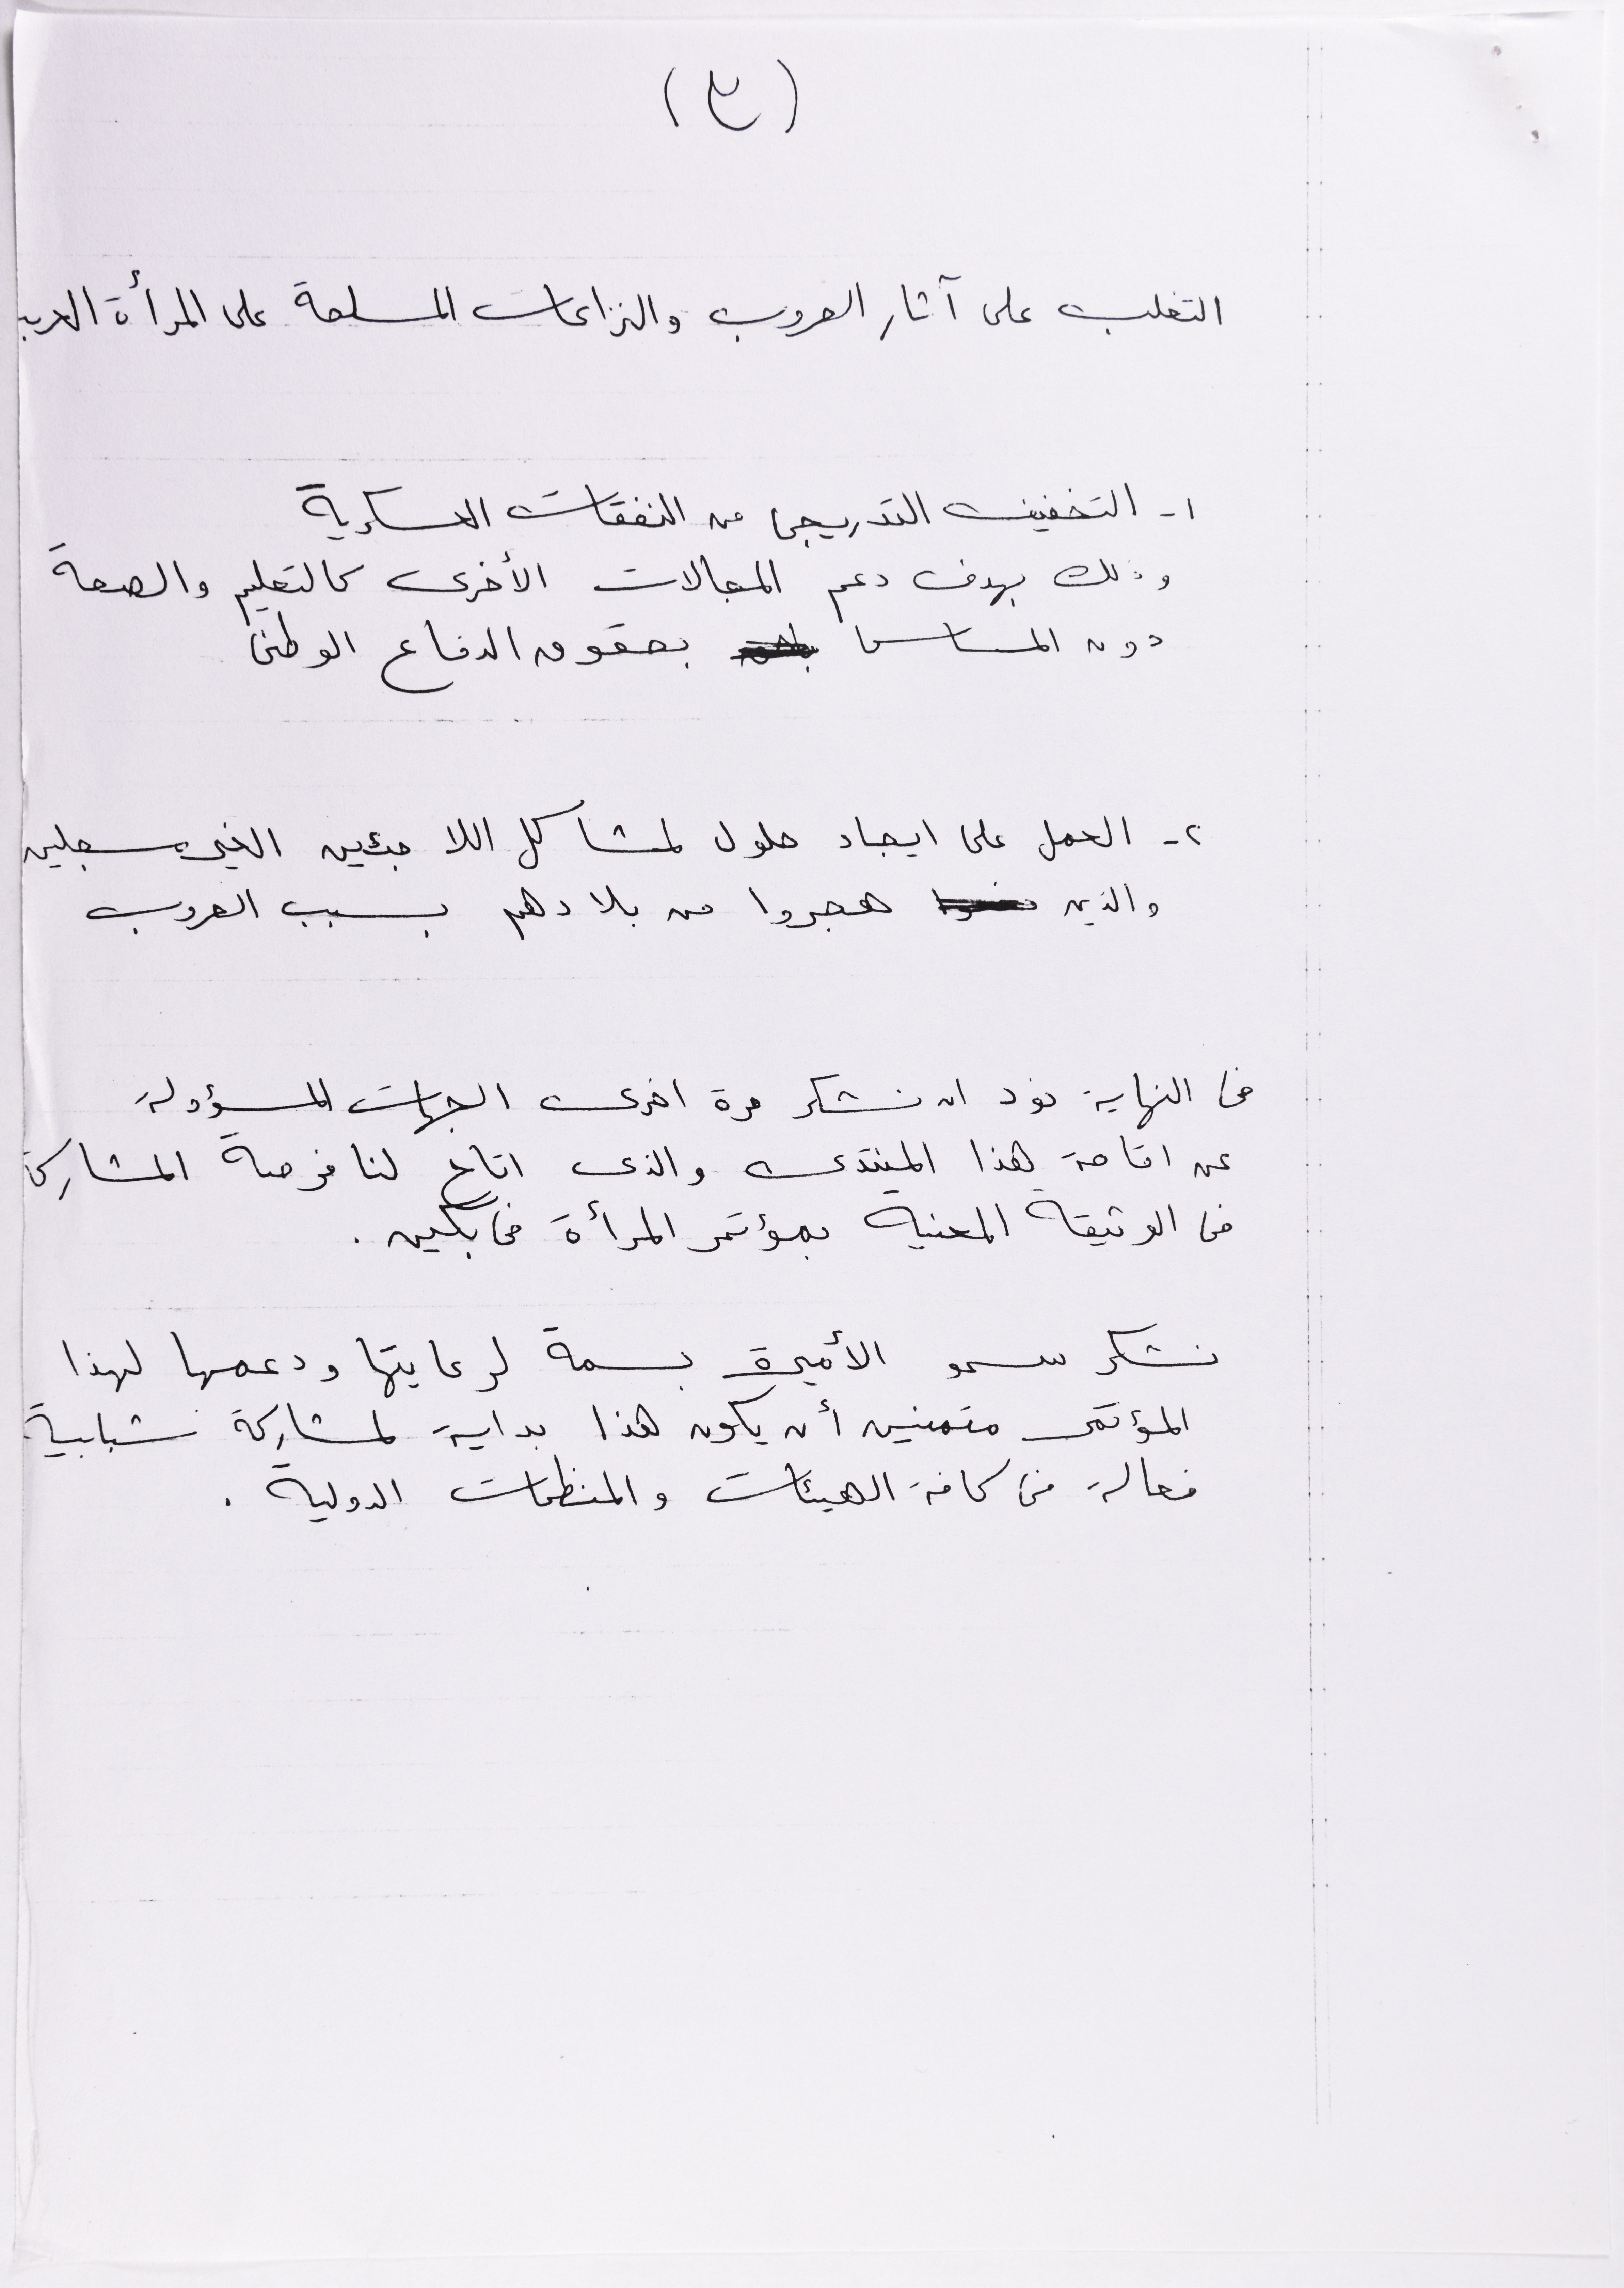 (٤)
التغلب على آثار الحروب والنزاعات المسلحة على المرأة العربي
١- التخفيف التدريجي من النفقات العسكرية
وذلك بهدف دعم المجالات الأخرى كالتعليم والصحة
دون المساس بحقوق الدفاع الوطني
٢- العمل على ايجاد حلول لمشاكل اللاجئين الغير مسجلين
والذين هجروا من بلادهم بسبب الحروب
في النهاية نود ان نشكر مرة اخرى الجهات المسؤولة
عن اقامة هذا المنتدى والذي اتاح لنا فرصة المشاركة
في الوثيقة المعنية بمؤتمر المرأة في بكين .
نشكر سمو الأميرة بسمة لرعايتها ودعمها لهذا
المؤتمر متمنين أن يكون هذا بداية لمشاركة شبابية
فعالة في كافة الهيئات والمنظمات الدولية .